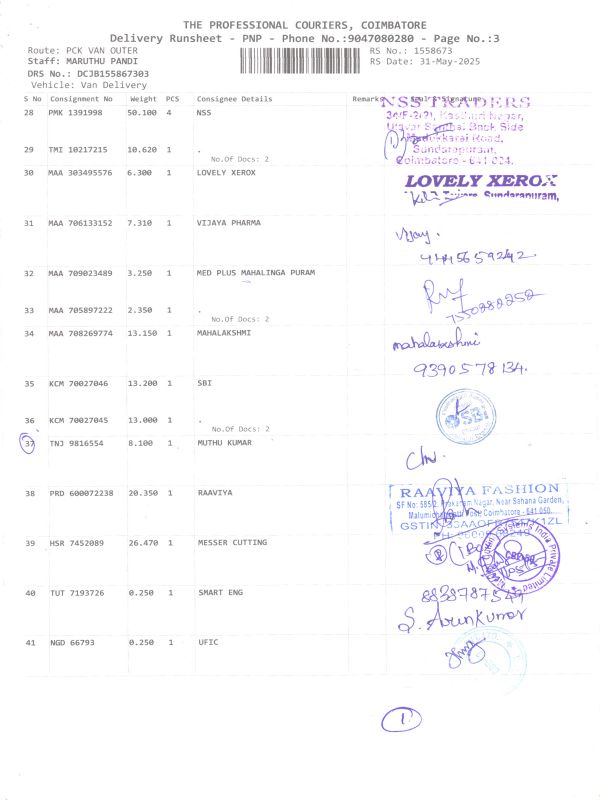 THE PROFESSIONAL COURIERS, COIMBATORE
Delivery Runsheet - PNP - Phone No.:9047080280 - Page No.:3
Route: PCK VAN OUTER
RS No.: 1558673
Staff: MARUTHU PANDI
RS Date: 31-May-2025
DRS No.: DCJB155867303
Vehicle: Van Delivery
S No Consignment No Weight PCS Consignee Details Remarks Seal & Signature
28 PMK 1391998 50.100 4 NSS
NSS TRADERS
Back Side
Road,
Sundarapuram,
Coimbatore - 641 024.
29 TMI 10217215 10.620 1 .
No.Of Docs: 2
30 MAA 303495576 6.300 1 LOVELY XEROX
LOVELY XEROX
Sundarapuram,
31 MAA 706133152 7.310 1 VIJAYA PHARMA
Vijay.
32 MAA 709023489 3.250 1 MED PLUS MAHALINGA PURAM
33 MAA 705897222 2.350 1 .
No.Of Docs: 2
34 MAA 708269774 13.150 1 MAHALAKSHMI
mahalakshmi
9390578134.
35 KCM 70027046 13.200 1 SBI
SBI
36 KCM 70027045 13.000 1 .
No.Of Docs: 2
37 TNJ 9816554 8.100 1 MUTHU KUMAR
38 PRD 600072238 20.350 1 RAAVIYA
RAAVIYA FASHION
SF No: 585/2, Nagar, Near Sahana Garden,
Coimbatore - 641 050.
39 HSR 7452089 26.470 1 MESSER CUTTING
Systems India Private Limited
40 TUT 7193726 0.250 1 SMART ENG
S. Arunkumar
41 NGD 66793 0.250 1 UFIC
1